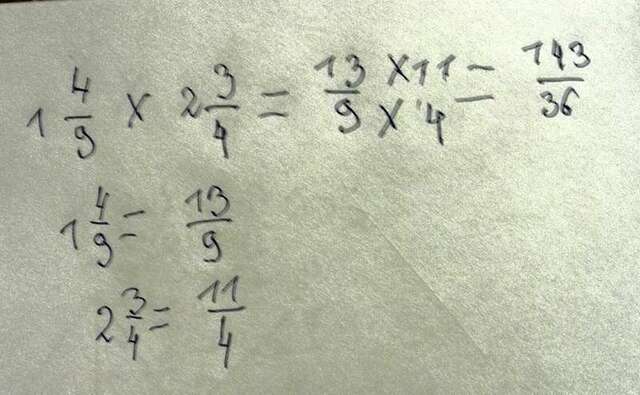 1 4/9 × 2 3/4 = 13/9 ×11/×4 = 143/36
1 4/9 = 13/9
2 3/4 = 11/4